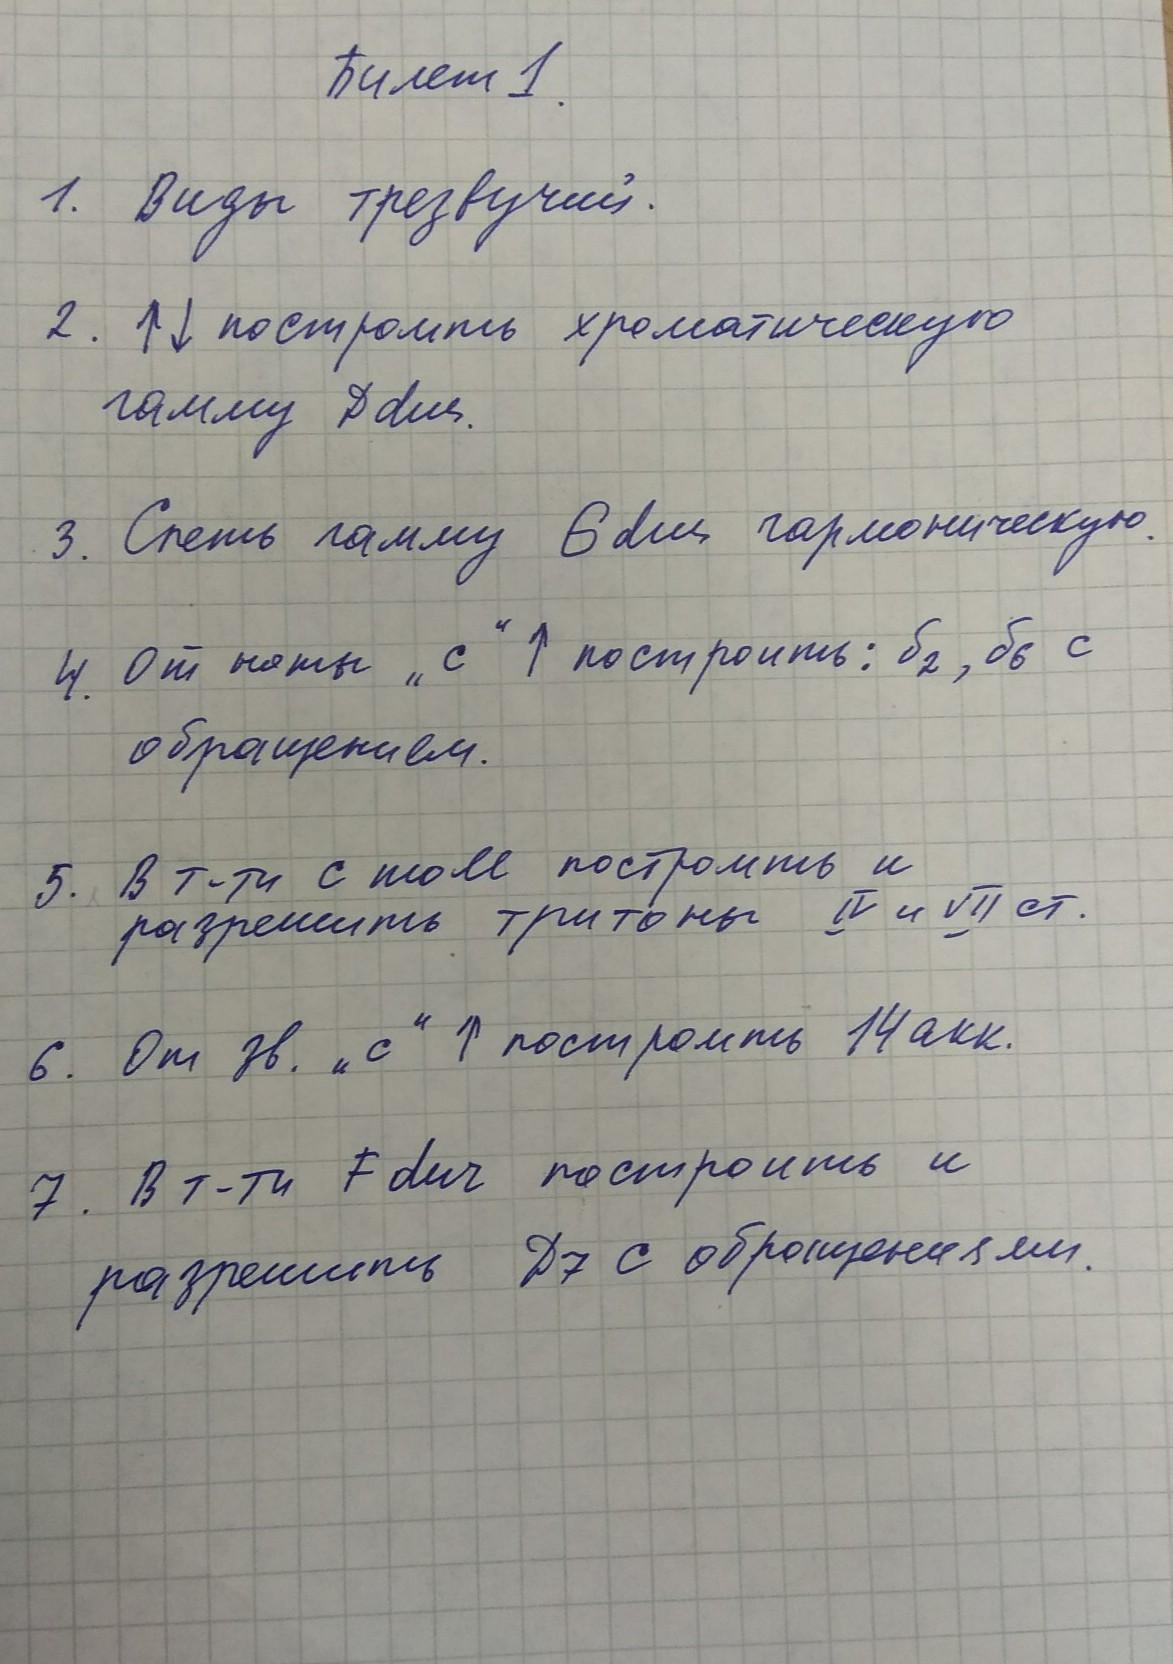 Билет 1.
1. Виды трезвучий.
2. ↑↓ построить хроматическую
гамму D dur.
3. Спеть гамму G dur гармоническую.
4. От ноты „с“ ↑ построить: б2, б6 с
обращением.
5. В т-ти c moll построить и
разрешить тритоны IV и VII ст.
6. От зв. „с“ ↑ построить 14 акк.
7. В т-ти F dur построить и
разрешить D7 с обращениями.